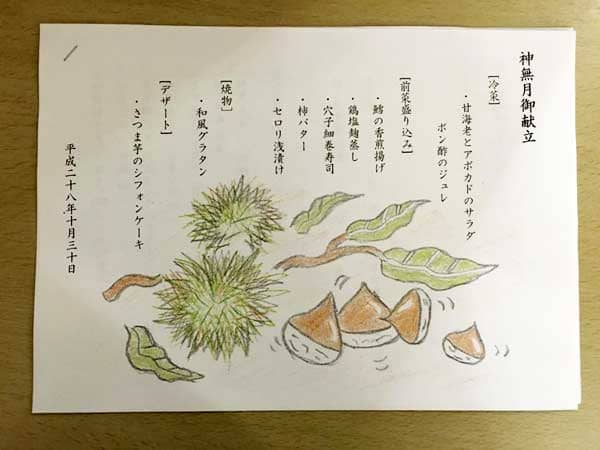 神無月御献立
[冷菜]
・甘海老とアボカドのサラダ
ポン酢のジュレ
[前菜盛り込み]
・鱈の香煎揚げ
・鶏塩麹蒸し
・穴子細巻寿司
・柿バター
・セロリ浅漬け
[焼物]
・和風グラタン
[デザート]
・さつま芋のシフォンケーキ
平成二十八年十月三十日